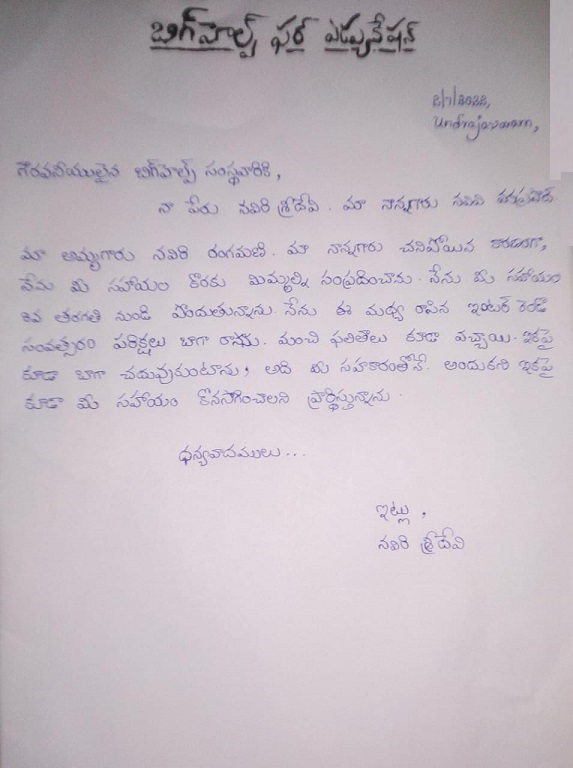 బిగ్‌హెల్ప్ ఫర్ ఎడ్యుకేషన్
2/7/2022,
Undrajavaram,
గౌరవనీయులైన బిగ్‌హెల్ప్ సంస్థవారికి,
నా పేరు నవిరి శ్రీదేవి. మా నాన్నగారు నవిరి
మా అమ్మగారు నవిరి రంగమణి. మా నాన్నగారు చనిపోయిన కారణంగా,
నేను మీ సహాయం కొరకు మిమ్మల్ని సంప్రదించాను. నేను మీ సహాయం
8వ తరగతి నుండి పొందుతున్నాను. నేను ఈ మధ్య రాసిన ఇంటర్ రెండో
సంవత్సరం పరీక్షలు బాగా రాసాను. మంచి ఫలితాలు కూడా వచ్చాయి. ఇకపై
కూడా బాగా చదువుకుంటాను, అది మీ సహకారంతోనే. అందుకని ఇకపై
కూడా మీ సహాయం కొనసాగించాలని ప్రార్థిస్తున్నాను.
ధన్యవాదములు...
ఇట్లు,
నవిరి శ్రీదేవి